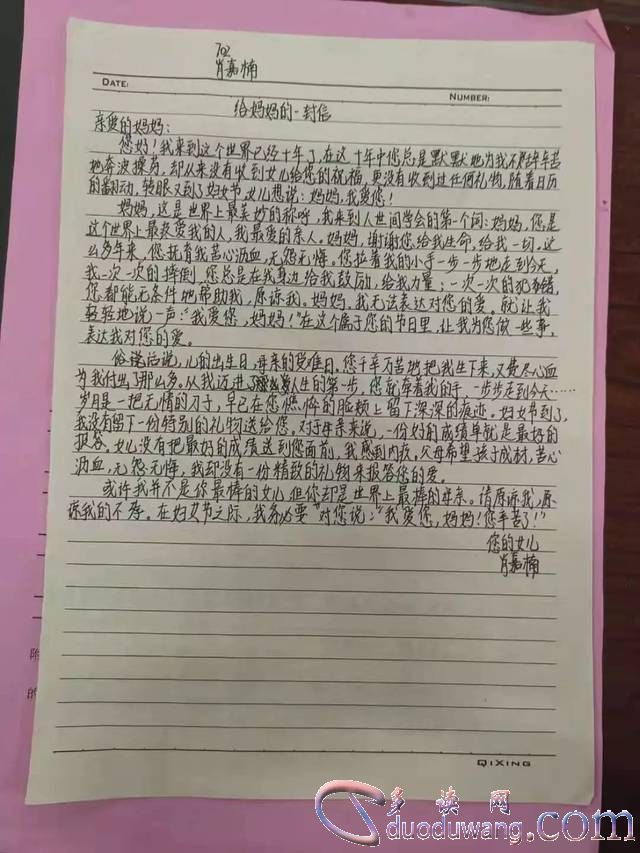 702
肖嘉楠
DATE:
NUMBER:
给妈妈的一封信
亲爱的妈妈:
您好!我来到这个世界已经十年了,在这十年中您总是默默地为我不辞辛苦
地奔波操劳,却从来没有收到女儿给您的祝福,更没有收到过任何礼物,随着日历
的翻动,转眼又到了妇女节,女儿想说:妈妈,我爱您!
妈妈,这是世界上最美妙的称呼,我来到人世间学会的第一个词:妈妈,您是
这个世界上最疼爱我的人,我最爱的亲人。妈妈,谢谢您给我生命,给我一切。这
么多年来,您抚育我苦心沥血,无怨无悔。您拉着我的小手一步一步地走到今天,
我一次一次的摔倒,您总是在我身边给我鼓励,给我力量;一次一次的犯错,
您都能无条件地帮助我,原谅我。妈妈,我无法表达对您的爱。就让我
轻轻地说一声:“我爱您,妈妈!”在这个属于您的节日里,让我为您做一些事,
表达我对您的爱。
俗话说,儿的出生日,母亲的受难日。您千辛万苦地把我生下来,又费尽心血
为我付出了那么多,从我迈进了人生的第一步,您就牵着我的手,一步步走到今天……
岁月是一把无情的刀子,早已在您憔悴的脸颊上留下深深的痕迹。妇女节到了,
我没有留下一份特别的礼物送给您。对于母亲来说,一份好的成绩单就是最好的
报答。女儿没有把最好的成绩送到您面前,我感到内疚。父母希望孩子成材,苦心
沥血,无怨无悔,我却没有一份精致的礼物来报答您的爱。
或许我并不是你最棒的女儿,但你却是世界上最棒的母亲。请原谅我,原
谅我的不孝。在妇女节之际,我务必要“对您说:“我爱您,妈妈!您辛苦了!”
您的女儿
肖嘉楠
QIXING
附
的
多读网
duoduwang.com